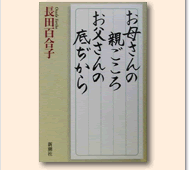 お母さんの
親ごころ
お父さんの
底ぢから
長田百合子
新潮社